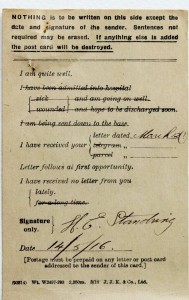 NOTHING is to be written on this side except the
date and signature of the sender. Sentences not
required may be erased. If anything else is added
the post card will be destroyed.
I am quite well.
I have been admitted into hospital
sick and am going on well.
wounded and hope to be discharged soon.
I am being sent down to the base.
letter dated March
I have received your telegram "
parcel "
Letter follows at first opportunity.
I have received no letter from you
lately.
for a long time.
Signature
only.
H. E. Standring
Date 14/5/16.
[Postage must be prepaid on any letter or post card
addressed to the sender of this card.]